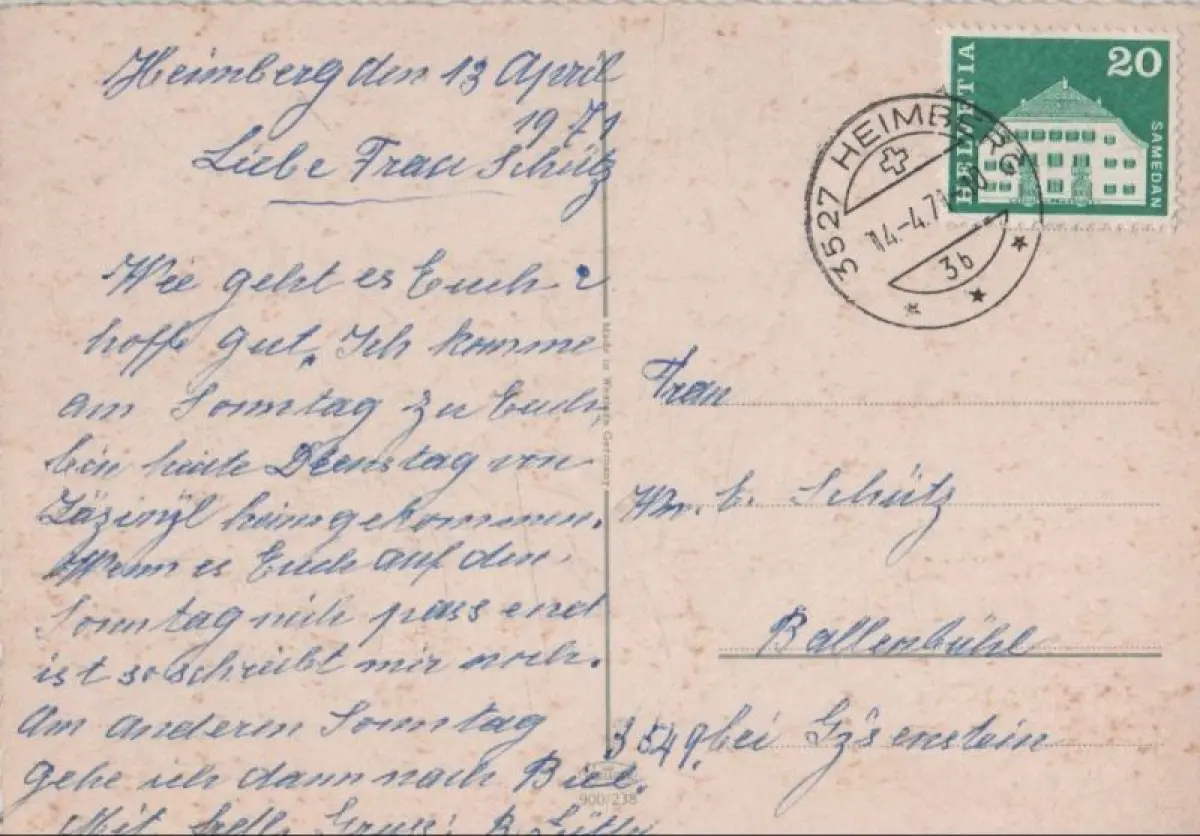 Heimberg den 13 April
1971
Liebe Frau Schütz
Wie geht es Euch?
hoffe gut. Ich komme
am Sonntag zu Euch,
bin heute Dienstag von
heimgekommen.
Wenn es Euch auf den
Sonntag nich passend
ist so schreibt mir noch.
Am anderm Sonntag
gehe ich dann nach Biel.
Mit Gruss:
HELVETIA
20
SAMEDAN
3527 HEIMBERG
14.-4.71
3b
Made in Western Germany
900/238
Frau
Schütz
Ballenbühl
3549 bei